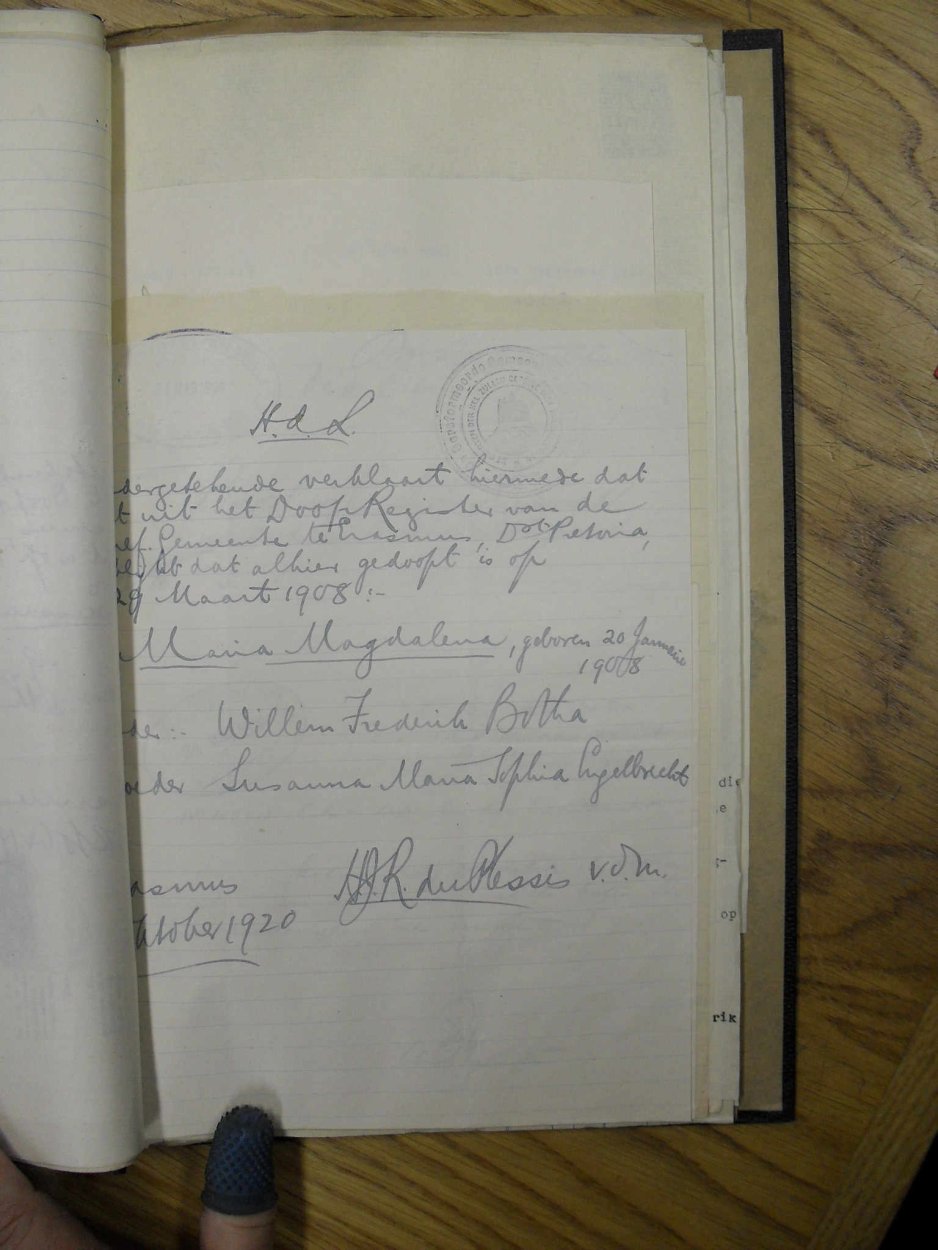 H. d. L.
dergetekende verklaart hiermede dat
t uit het Doop Register van de
ef. Gemeente te Erasmus, Dst Pretoria,
blykt dat alhier gedoopt is op
29 Maart 1908 :-
Maria Magdalena, geboren 20 Januarie
1908
der :- Willem Frederik Botha
oeder Susanna Maria Sophia Engelbrecht
asmus H.J.R. du Plessis v.d.m.
ktober 1920
die
e
op
rik